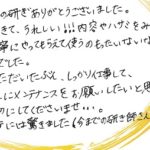 の研ぎありがとうございました。
きて、うれしい!!!内容やハサミをみ
寧にやってもらえて使うのもったいないな
でした。
ただいたぶん、しっかり仕事して、
にメンテナンスをお願いしたいと思
にしてくださいませ...。
には驚きました(今までの研ぎ師さん